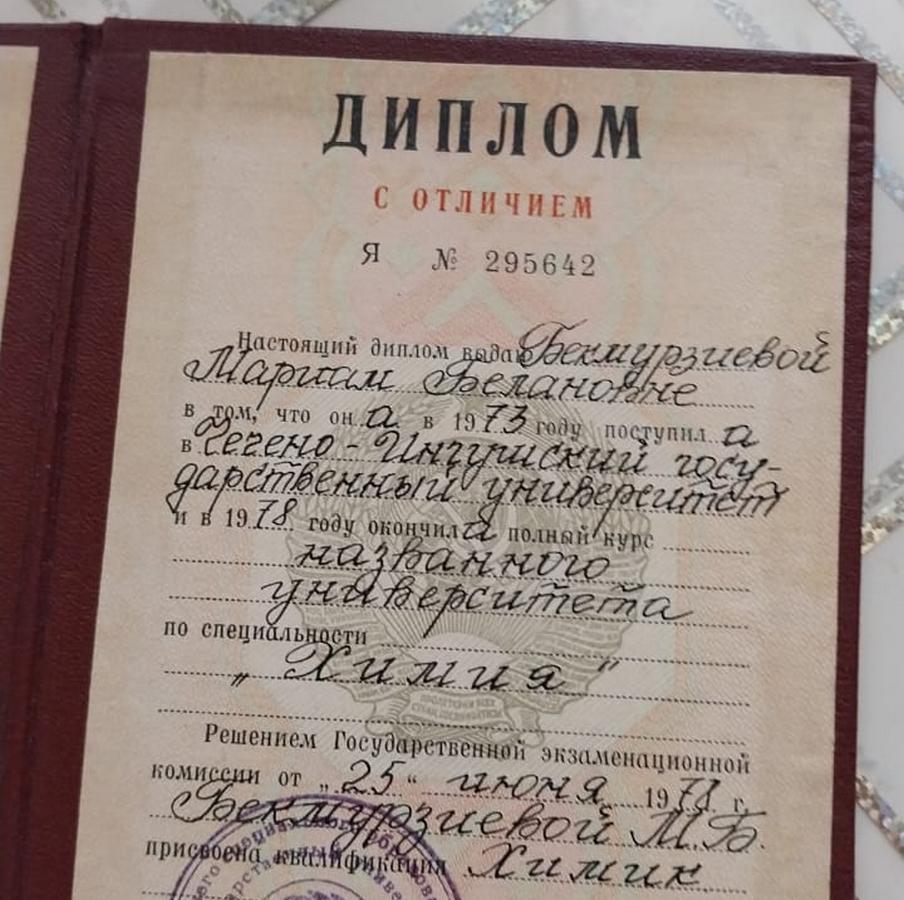 ДИПЛОМ
С ОТЛИЧИЕМ
Я № 295642
Настоящий диплом выдан Бекмурзиевой
Мариам Белановне
в том, что он а в 1973 году поступил а
в Чечено-Ингушский госу-
дарственный университет
и в 1978 году окончил а полный курс
названного
университета
по специальности
„Химия“
Решением Государственной экзаменационной
комиссии от „25“ июня 1978 г.
Бекмурзиевой М.Б.
присвоена квалификация Химик